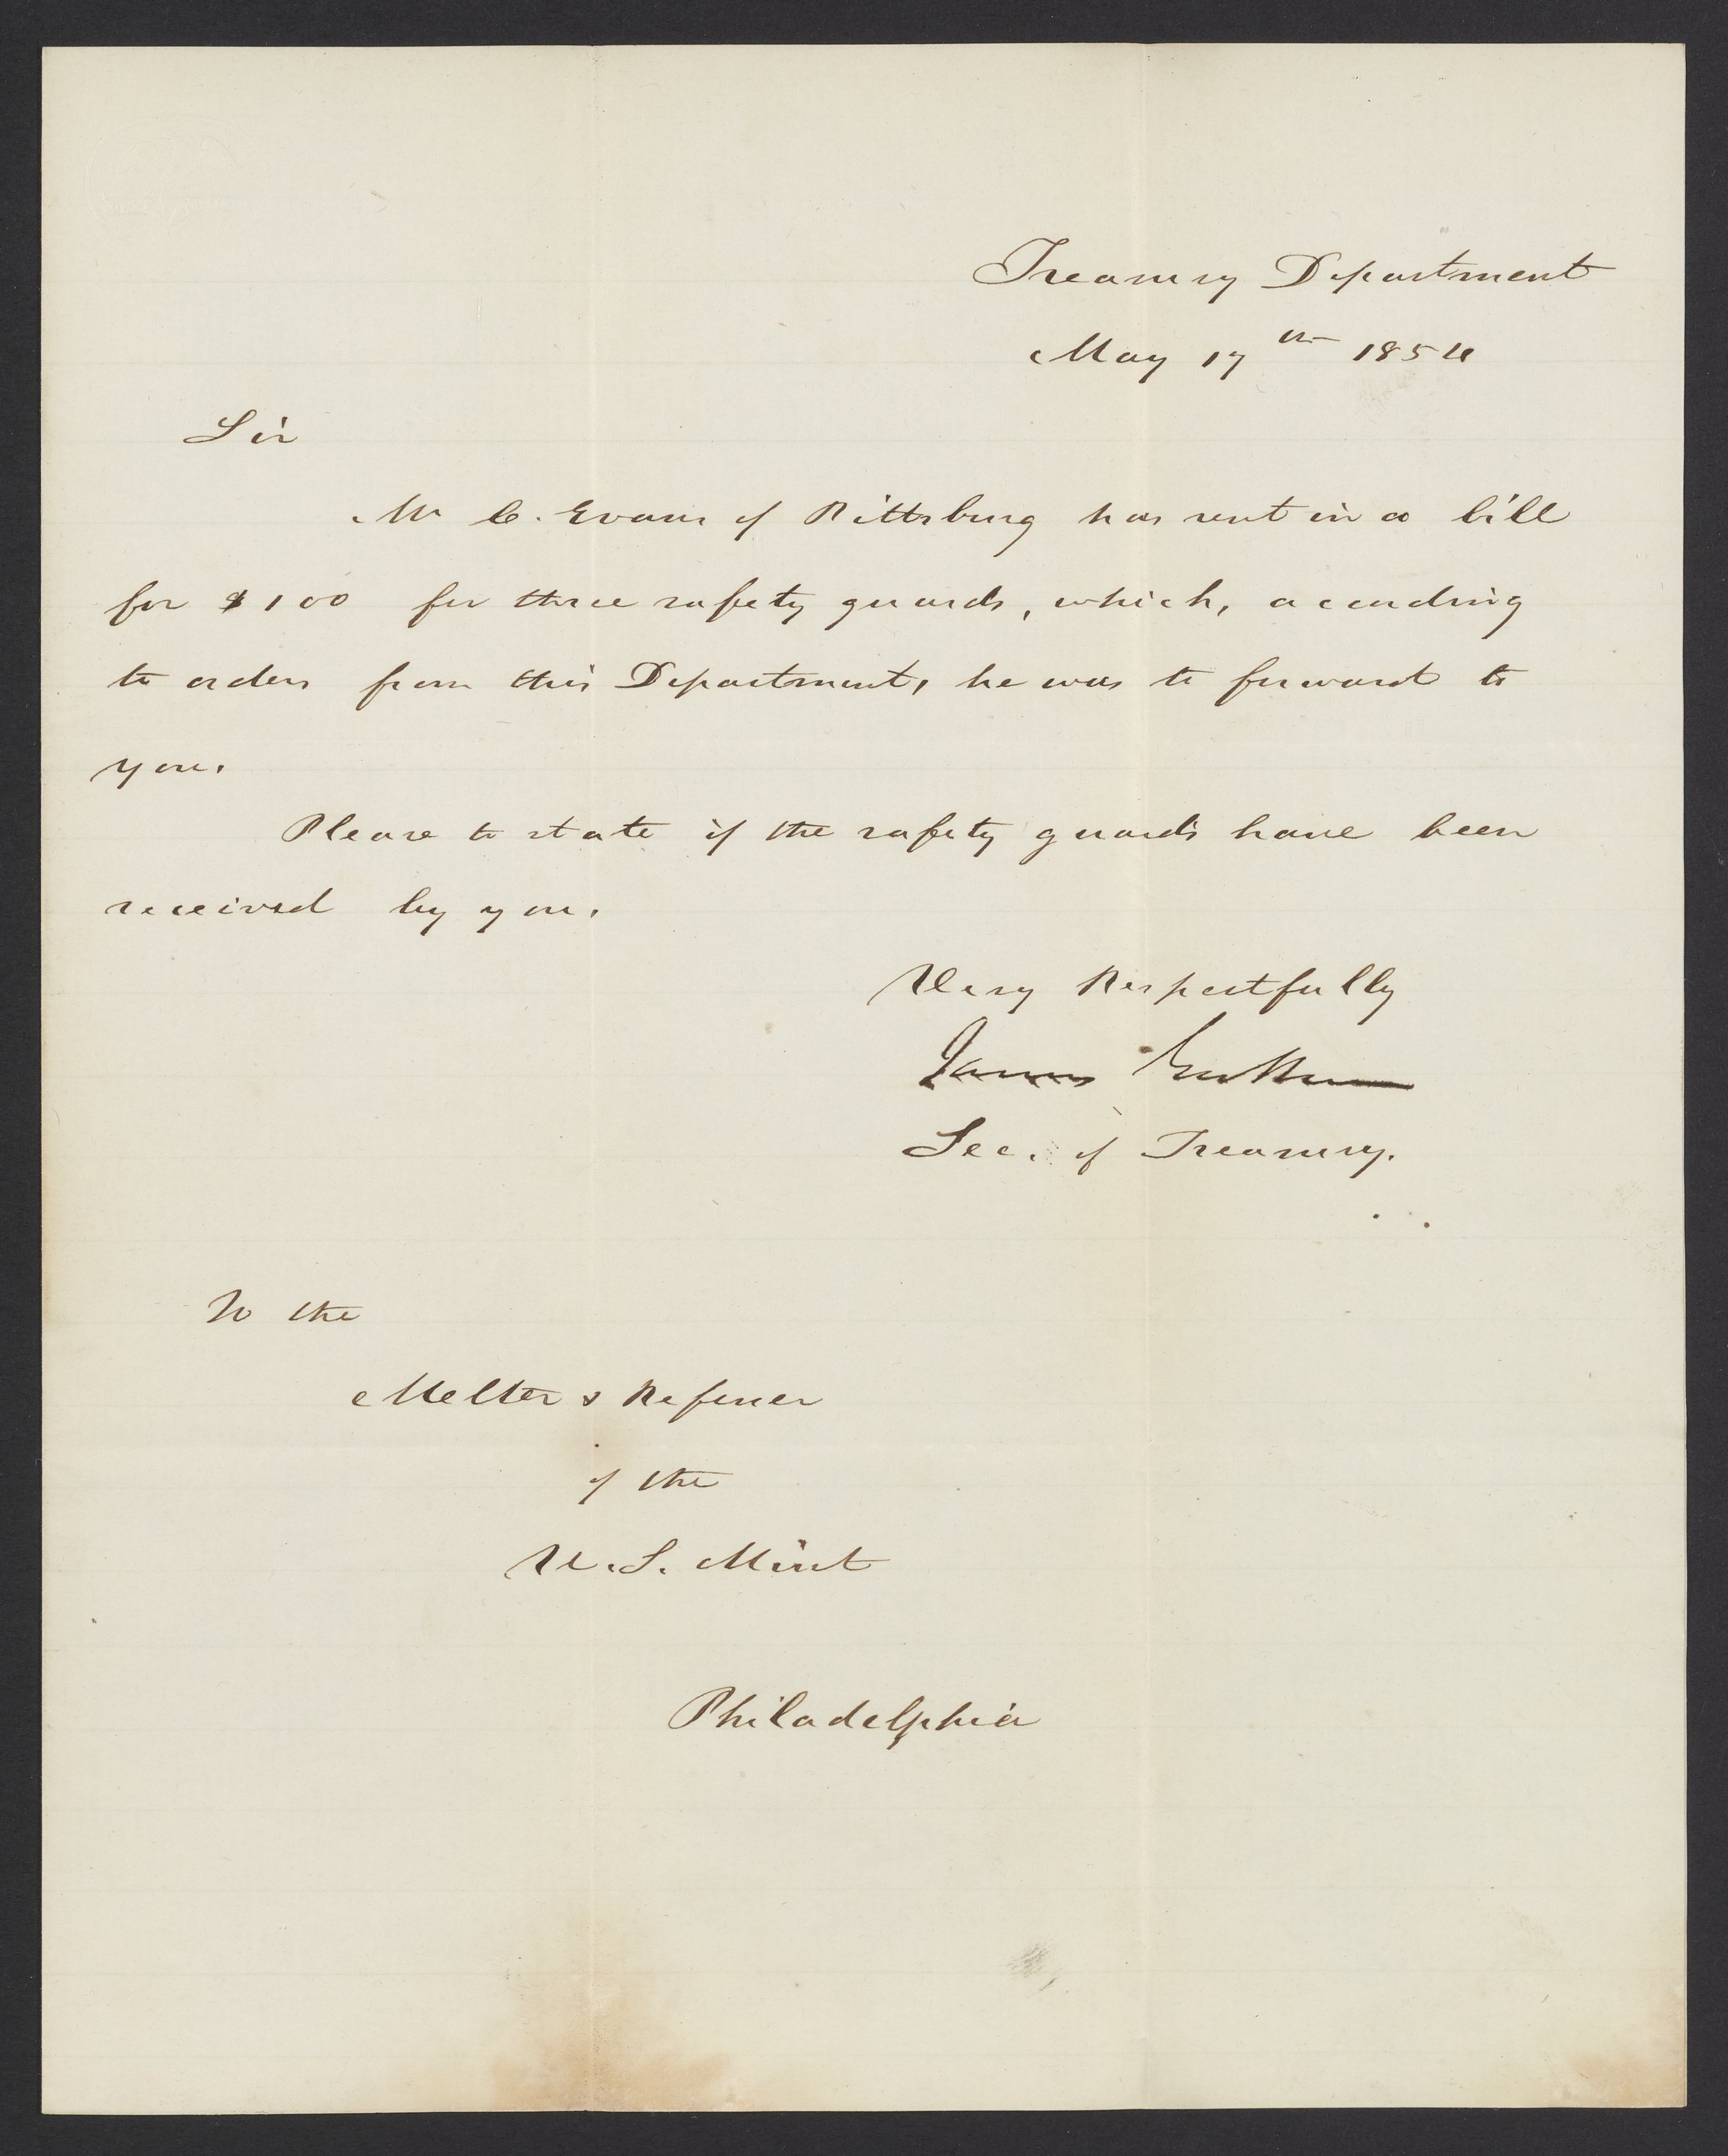 Treasury Department
May 17th 1854
Sir
Mr C. Evans of Pittsburg has sent in a bill
for $100 for three safety guards, which, according
to orders from this Department, he was to forward to
you.
Please to state if the safety guards have been
received by you.
Very Respectfully
James Guthrie
Sec. of Treasury.
To the
Melter & Refiner
of the
U.S. Mint
Philadelphia